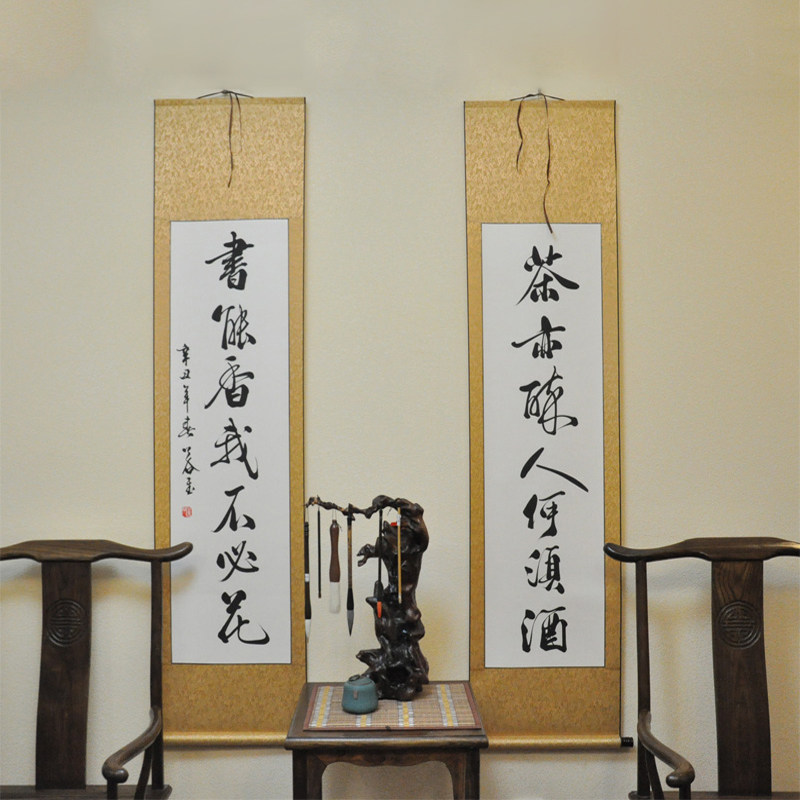 茶亦醉人何須酒
書能香我不必花
辛丑年春